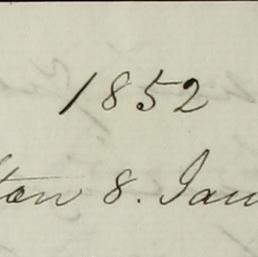 1852
ton 8. Jan